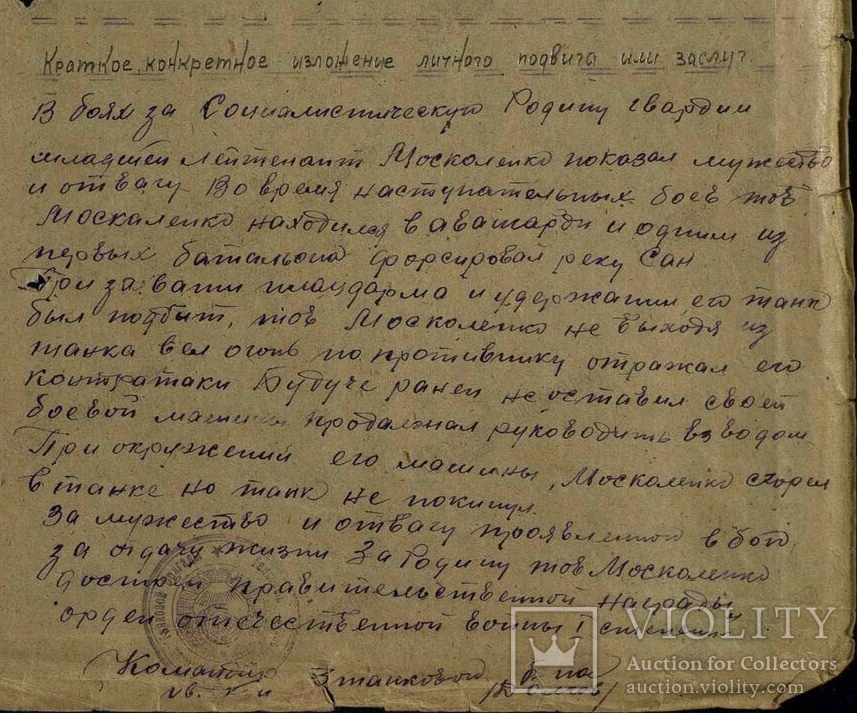 Краткое, конкретное изложение личного подвига или заслуг.
В боях за Социалистическую Родину гвардии
младший лейтенант Москаленко показал мужество
и отвагу Во время наступательных боев тов
Москаленко находился в авангарди и одним из
первых батальона форсировал реку Сан
При захвати плацдарма и удержании его танк
был подбит, тов Москаленко не выходя из
танка вел огонь по противнику отражал его
контратаки Будуче ранен не оставил своей
боевой машины продалжал руководить взводом
При окружении его машины, Москаленко сгорел
в танке но танк не покинул.
За мужество и отвагу проявленной в бою
за отдачу жизни За Родину тов Москаленко
достоен правительственной награды
орден отечественной войны I степени
Командир 3 танковой
VIOLITY
Auction for Collectors
auction.violity.com